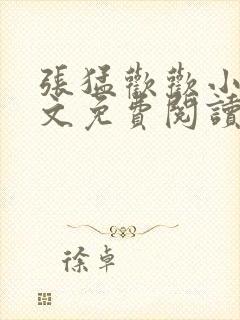 張猛歡歡小
文免費閱讀
徐卓